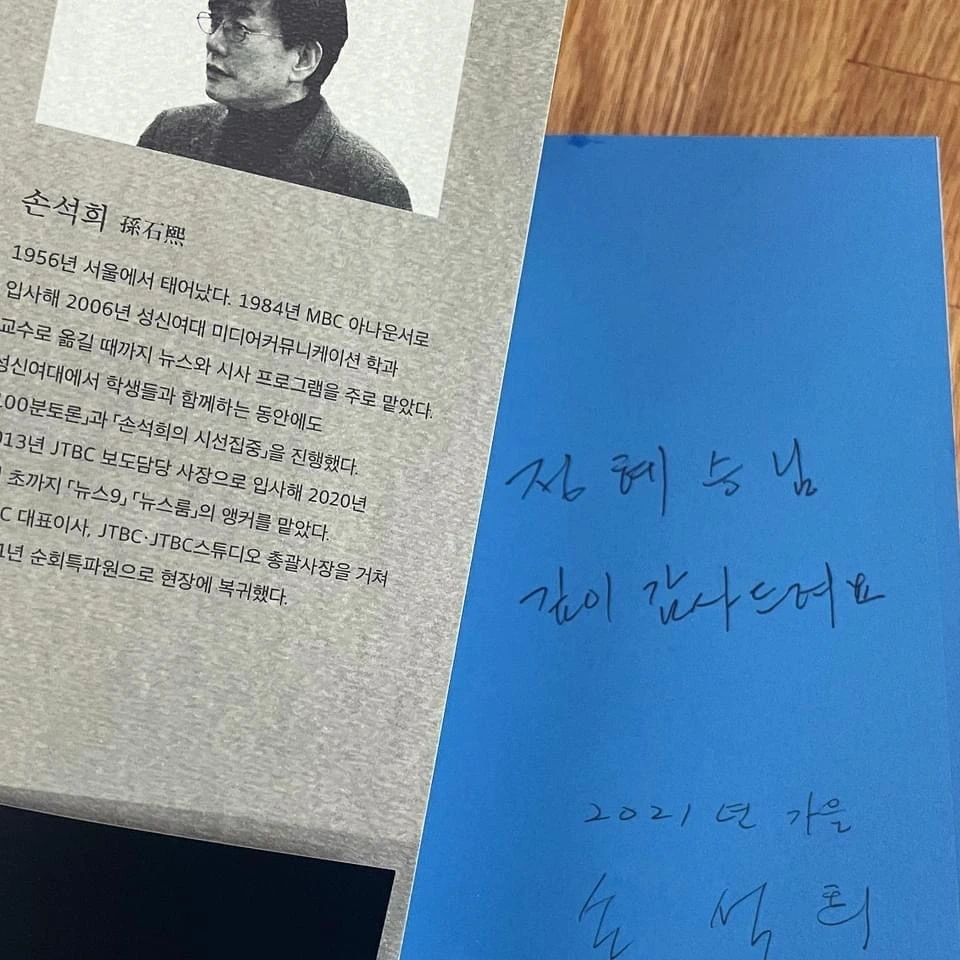 손석희 孫石熙
1956년 서울에서 태어났다. 1984년 MBC 아나운서로
입사해 2006년 성신여대 미디어커뮤니케이션 학과
교수로 옮길 때까지 뉴스와 시사 프로그램을 주로 맡았다.
성신여대에서 학생들과 함께하는 동안에도
100분토론」과 「손석희의 시선집중」을 진행했다.
013년 JTBC 보도담당 사장으로 입사해 2020년
초까지 「뉴스9」 「뉴스룸」의 앵커를 맡았다.
C 대표이사, JTBC·JTBC스튜디오 총괄사장을 거쳐
1년 순회특파원으로 현장에 복귀했다.
정혜승님
깊이 감사드려요
2021년 가을
손석희